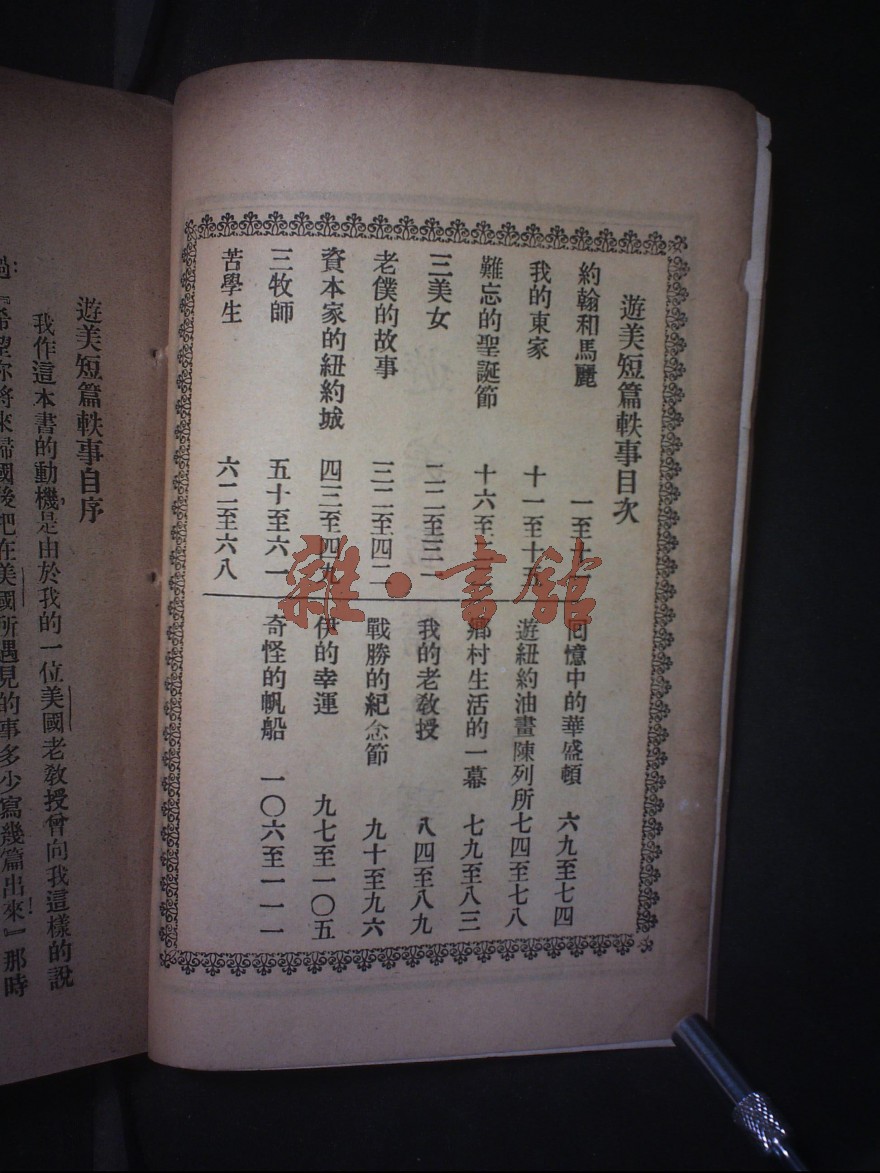 遊美短篇軼事目次
約翰和馬麗 一至十
我的東家 十一至十五
難忘的聖誕節 十六至二
三美女 二二至三一
老僕的故事 三二至四二
資本家的紐約城 四三至四九
三牧師 五十至六一
苦學生 六二至六八
回憶中的華盛頓 六九至七四
遊紐約油畫陳列所 七四至七八
鄉村生活的一幕 七九至八三
我的老教授 八四至八九
戰勝的紀念節 九十至九六
伊的幸運 九七至一〇五
奇怪的帆船 一〇六至一一一
遊美短篇軼事自序
我作這本書的動機,是由於我的一位美國老教授曾向我這樣的說
過:『希望你將來歸國後把在美國所遇見的事多少寫幾篇出來!』那時
雜·書館